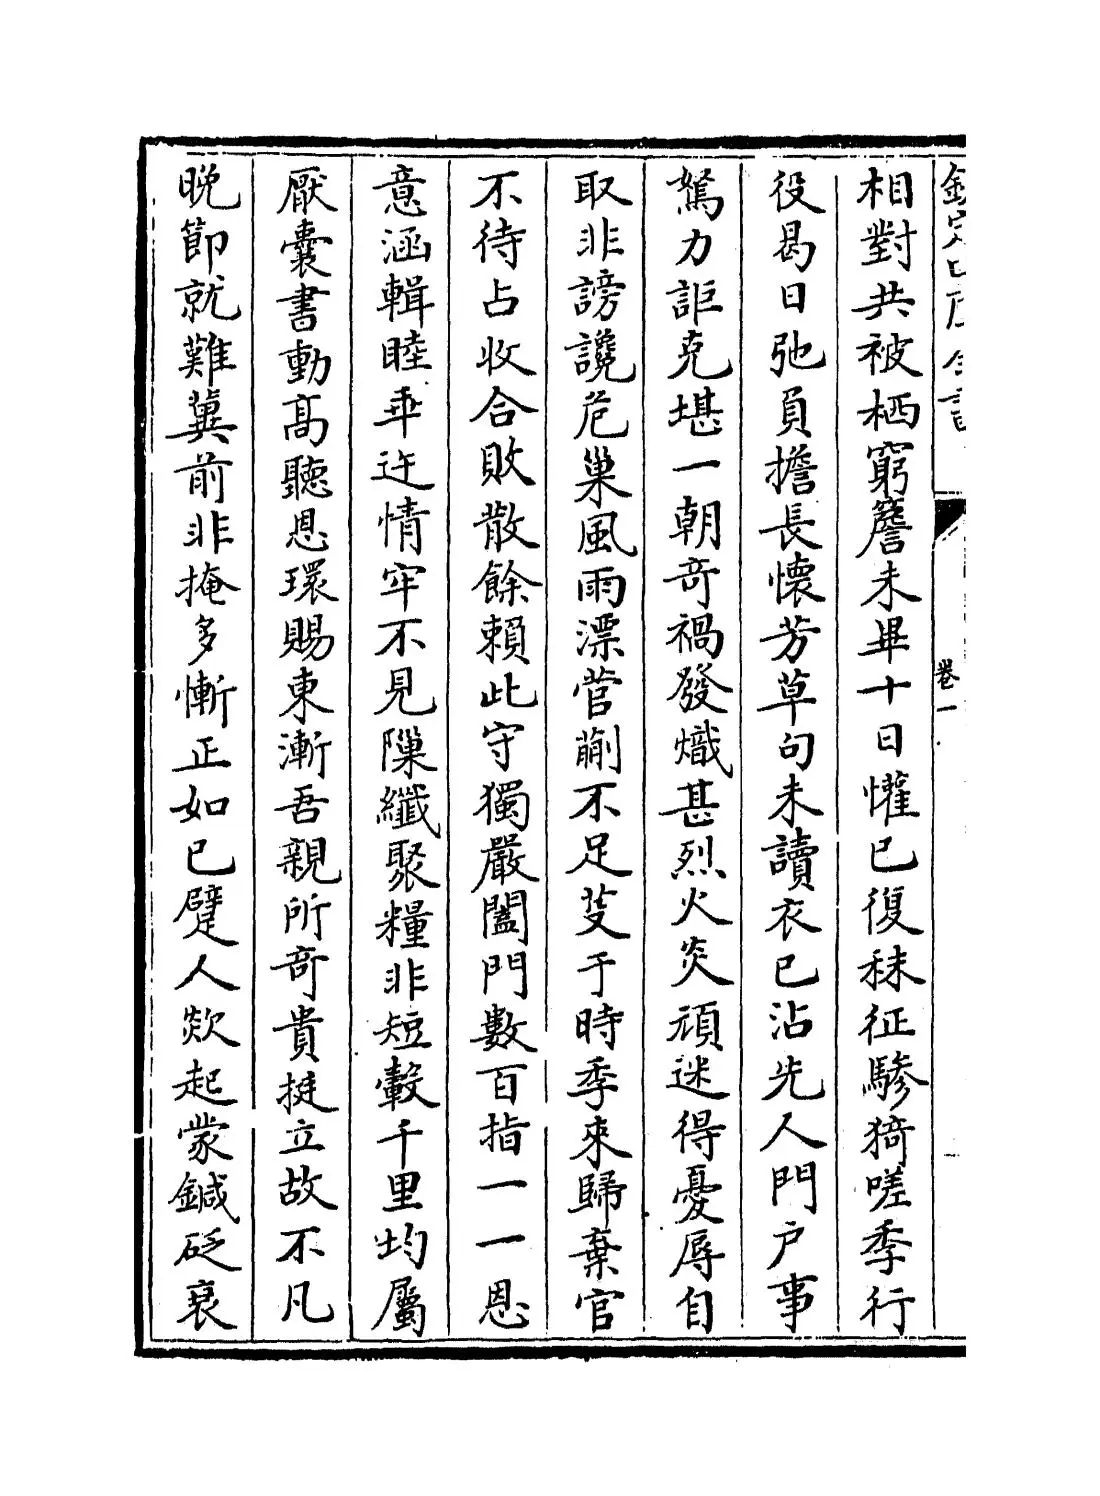 欽定四庫全書
卷一
相對共被栖窮簷未畢十日懽已復秣征驂猗嗟季行
役曷日弛負擔長懷芳草句未讀衣已沾先人門户事
駑力詎克堪一朝竒禍發熾甚烈火炎頑迷得憂辱自
取非謗讒危巢風雨漂菅蒯不足芟于時季來歸棄官
不待占收合敗散餘賴此守獨嚴闔門數百指一一恩
意涵輯睦乖迕情牢不見隟纖聚糧非短轂千里均屬
厭囊書動高聽恩環賜東漸吾親所竒貴挺立故不凡
晚節就難冀前非掩多慚正如已躄人欻起蒙鍼砭衰